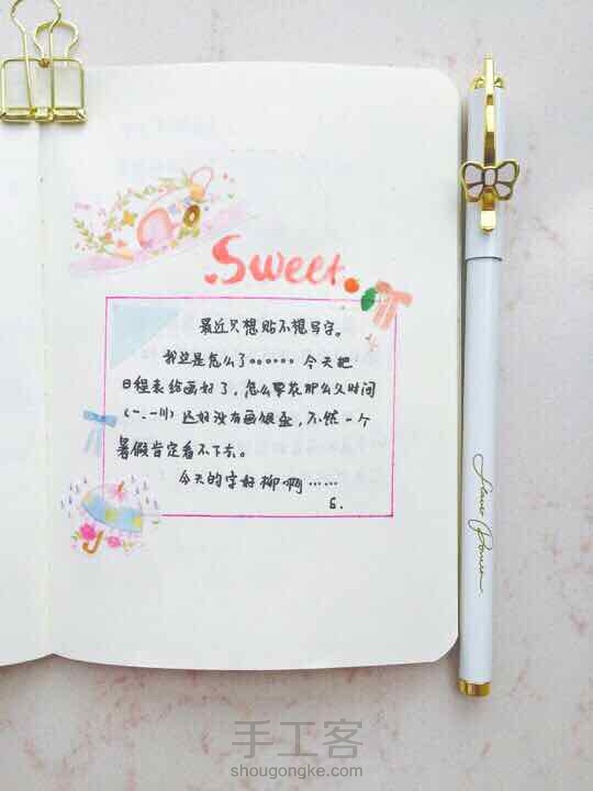 Sweet
最近只想贴不想写字。
我这是怎么了。。。。。。今天把
日程表给画好了，怎么要花那么久时间
(一.一川)还好没有画很歪，不然一个
暑假肯定看不下去。
今天的字好柳啊……
6.
手工客
shougongke.com